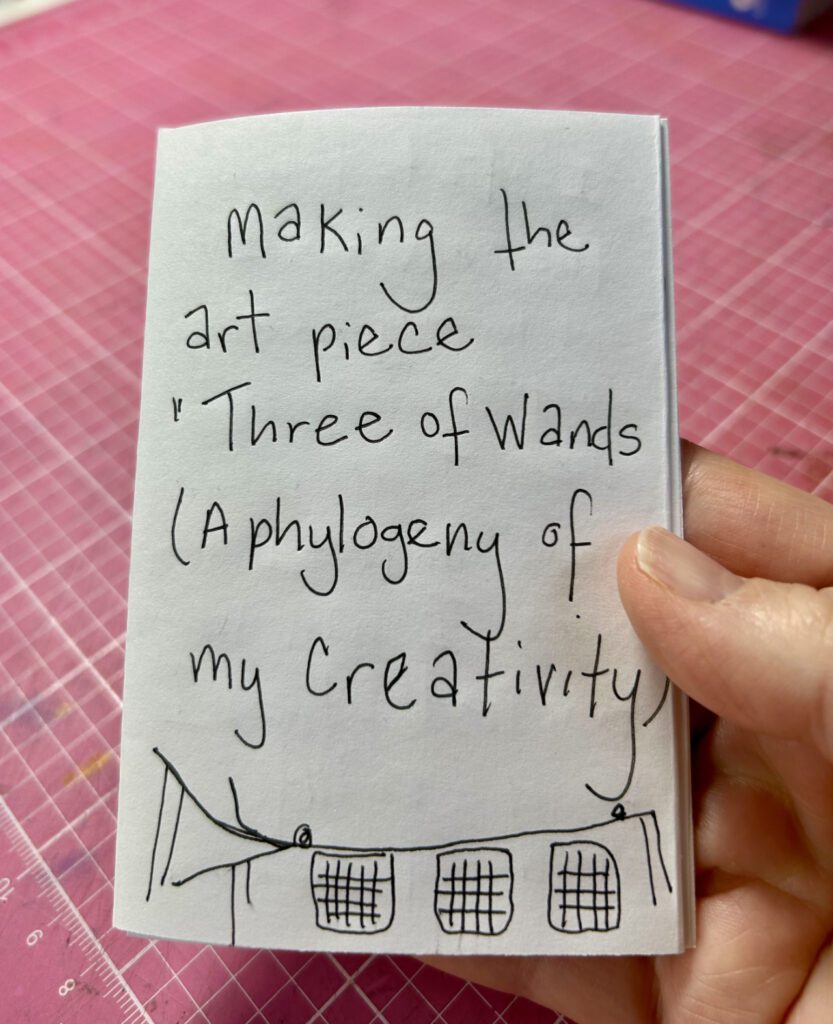 Making the
art piece
"Three of Wands
(A phylogeny of
my Creativity)
10
9
8